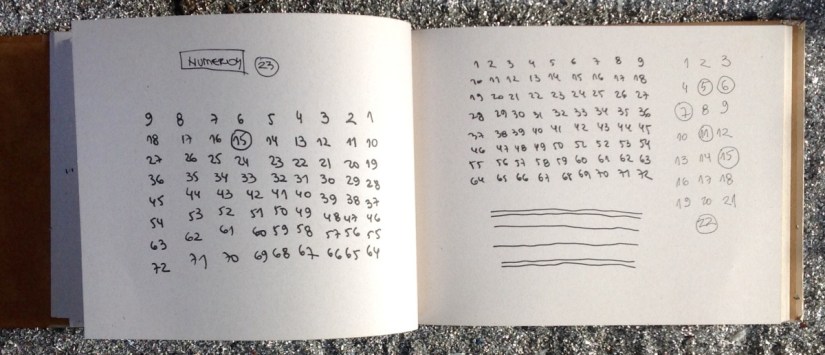 NUMERICA 23
9 8 7 6 5 4 3 2 1
18 17 16 15 14 13 12 11 10
27 26 25 24 23 22 21 20 19
36 35 34 33 32 31 30 29 28
45 44 43 42 41 40 39 38 37
54 53 52 51 50 49 48 47 46
63 62 61 60 59 58 57 56 55
72 71 70 69 68 67 66 65 64
1 2 3 4 5 6 7 8 9
10 11 12 13 14 15 16 17 18
19 20 21 22 23 24 25 26 27
28 29 30 31 32 33 34 35 36
37 38 39 40 41 42 43 44 45
46 47 48 49 50 51 52 53 54
55 56 57 58 59 60 61 62 63
64 65 66 67 68 69 70 71 72
1 2 3
4 5 6
7 8 9
10 11 12
13 14 15
16 17 18
19 20 21
22